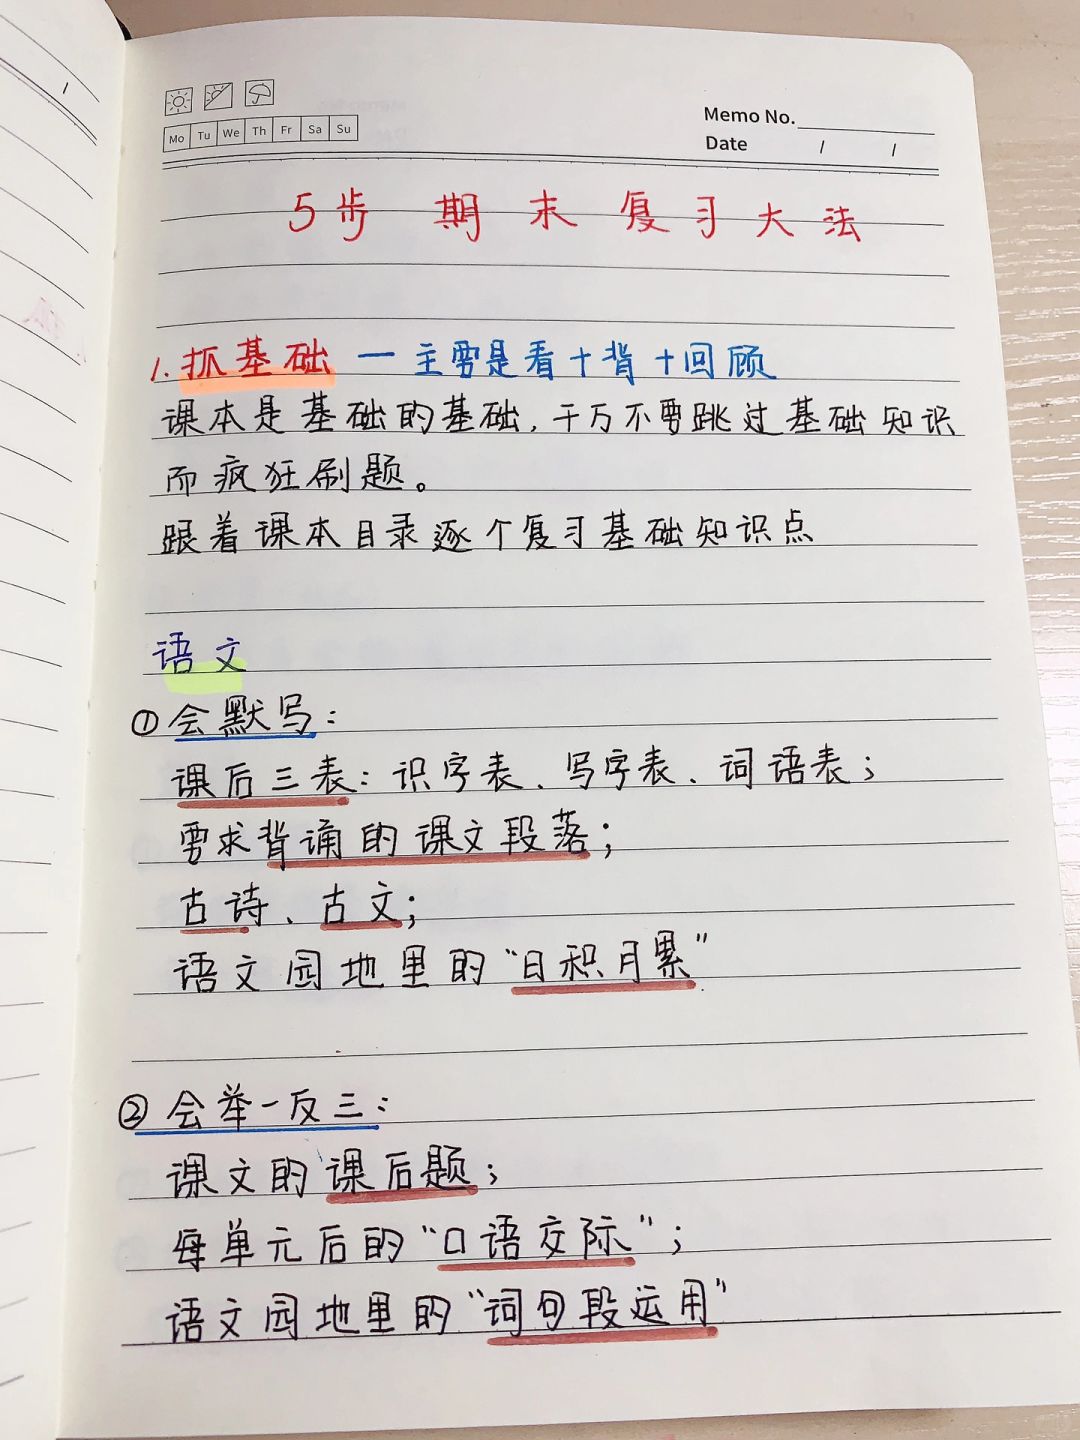 Mo Tu We Th Fr Sa Su
Memo No.
Date / /
5步 期末复习大法
1. 抓基础 — 主要是看+背+回顾
课本是基础的基础, 千万不要跳过基础知识
而疯狂刷题。
跟着课本目录逐个复习基础知识点
语文
① 会默写:
课后三表: 识字表、写字表、词语表;
要求背诵的课文段落;
古诗、古文;
语文园地里的“日积月累”
② 会举一反三:
课文的课后题;
每单元后的“口语交际”;
语文园地里的“词句段运用”